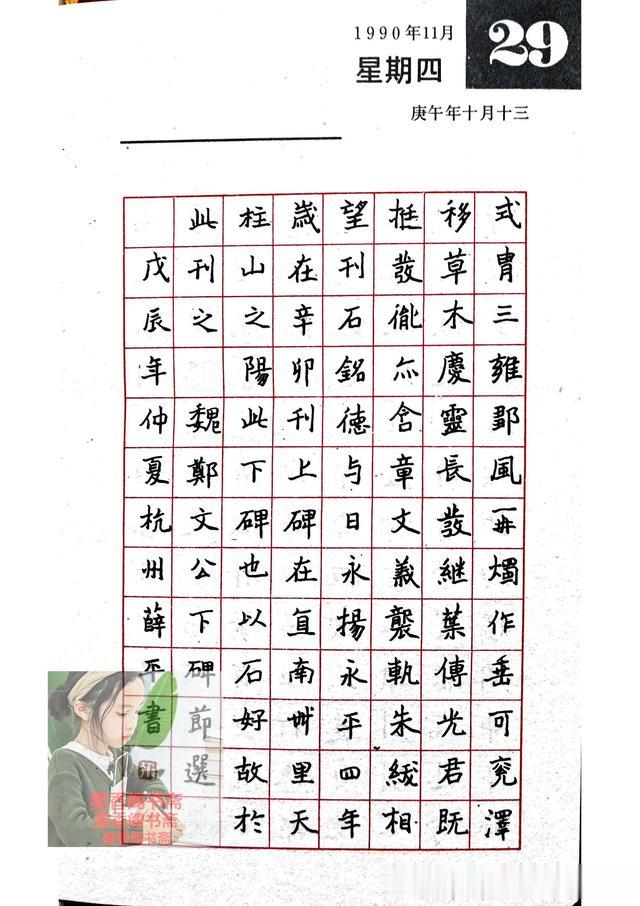 1990年11月
29
星期四
庚午年十月十三
式胄三雍鄒風再燭作垂可兗澤
移草木慶靈長發継葉傳光君既
挺發胤亦含章文義襲軌朱紱相
望刊石銘德与日永揚永平四年
歲在辛卯刊上碑在直南卌里天
柱山之陽此下碑也以石好故於
此刊之 魏鄭文公下碑節選
戊辰年仲夏杭州薛平書